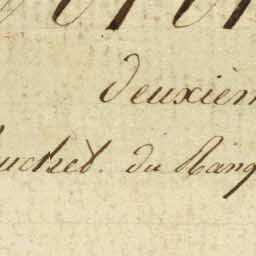 deuxièm
uchet. du Rang